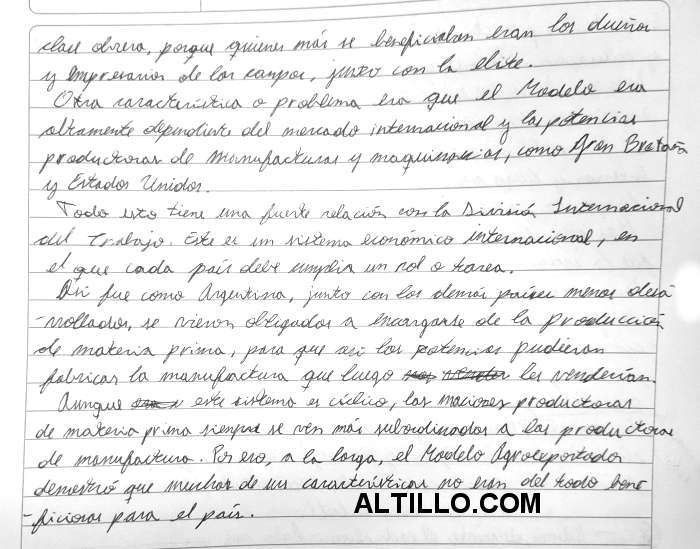 clase obrera, porque quienes más se beneficiaban eran los dueños
y empresarios de los campos, junto con la elite.
Otra característica o problema era que el Modelo era
altamente dependiente del mercado internacional y las potencias
productoras de manufacturas y maquinarias, como Gran Bretaña
y Estados Unidos.
Todo esto tiene una fuerte relación con la División Internacional
del Trabajo. Este es un sistema económico internacional, en
el que cada país debe cumplir un rol o tarea.
Así fue como Argentina, junto con los demás países menos desa
-rrollados, se vieron obligados a encargarse de la producción
de materia prima, para que así las potencias pudieran
fabricar la manufactura que luego les venderían.
Aunque este sistema es cíclico, las naciones productoras
de materia prima siempre se ven más subordinadas a las productoras
de manufactura. Por eso, a la larga, el Modelo Agroexportador
demostró que muchas de sus características no eran del todo bene
-ficiosas para el país.
ALTILLO.COM